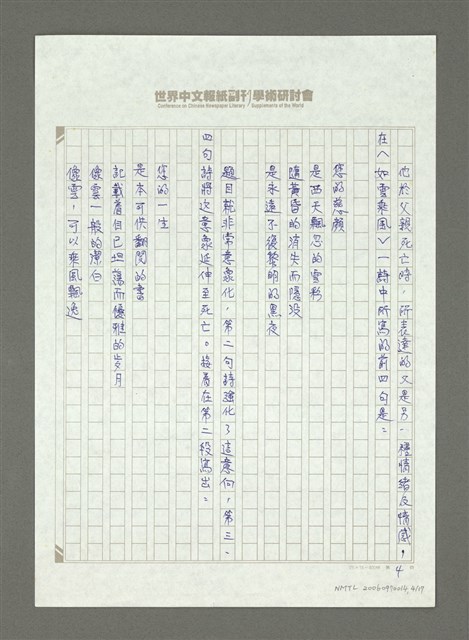 世界中文報紙副刊學術研討會
Conference on Chinese Newspaper Literary Supplements of the World
他於父親死亡時,所表達的又是另一種情緒及情感,
在〈如雲乘風〉一詩中所寫的前四句是:
您的慈顏
是西天飄忽的雲彩
隨黃昏的消失而隱沒
是永遠不復黎明的黑夜
題目就非常意象化,第二句詩強化了這意向,第三、
四句詩將次意象延伸至死亡。接著在第二段寫出:
您的一生
是本可供翻閱的書
記載着自已坦蕩而優雅的歲月
像雲一般的潔白
像雲,可以乘風飄逸
4
NMTL 20060970014 4/17